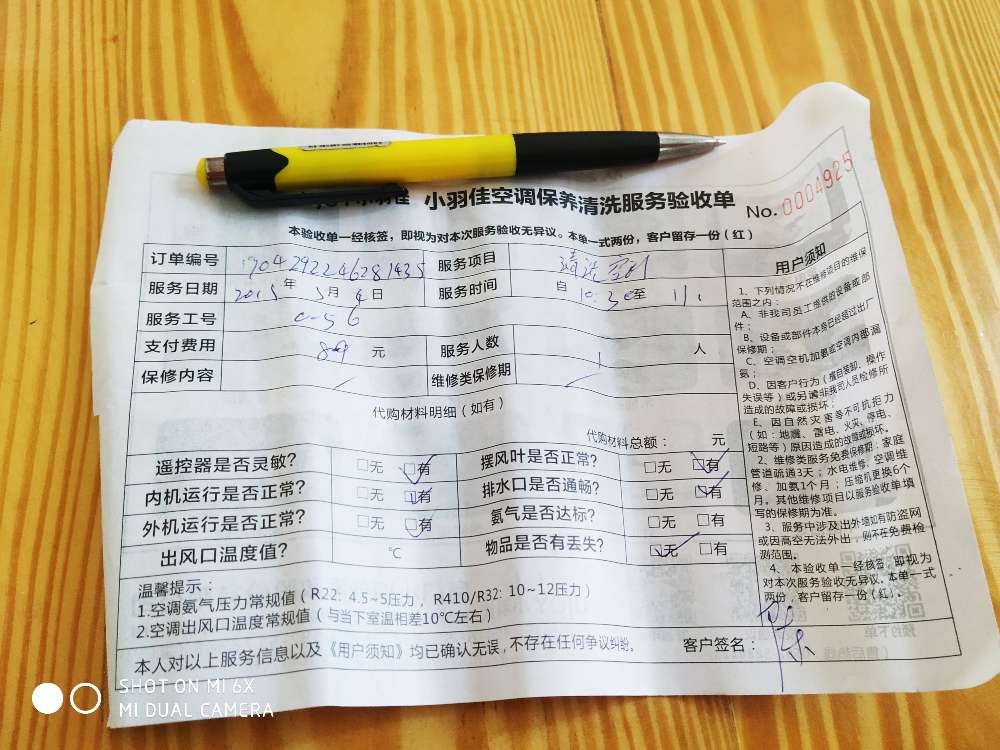 小羽佳空调保养清洗服务验收单
No. 0004925
本验收单一经核签，即视为对本次服务验收无异议。本单一式两份，客户留存一份（红）
订单编号 服务项目 清洗空调
服务日期 年 5月4日 服务时间 自10:30至
服务工号 0-56
支付费用 89元 服务人数 1人
保修内容 维修类保修期
代购材料明细（如有）
代购材料总额： 元
遥控器是否灵敏？ □无 □有 摆风叶是否正常？ □无 □有
内机运行是否正常？ □无 □有 排水口是否通畅？ □无 □有
外机运行是否正常？ □无 □有 氨气是否达标？ □无 □有
出风口温度值？ ℃ 物品是否有丢失？ □无 □有
温馨提示：
1.空调氨气压力常规值（R22: 4.5~5压力， R410/R32: 10~12压力）
2.空调出风口温度常规值（与当下室温相差10℃左右）
本人对以上服务信息以及《用户须知》均已确认无误，不存在任何争议纠纷。 客户签名：
用户须知
1、下列情况不在维修项目的维保
范围之内：
A、非我司员工提供的设备或部
件；
B、设备或部件本身已经超过出厂
保修期；
C、空调空机加氨或空调内部漏
氨；
D、因客户行为（擅自装卸、操作
失误等）或另请非我司人员检修所
造成的故障或损坏；
E、因自然灾害等不可抗拒力
（如：地震、雷电、火灾、停电、
短路等）原因造成的故障或损坏。
2、维修类服务免费保修期：家庭
管道疏通3天；水电维修、空调维
修、加氨1个月；压缩机更换6个
月。其他维修项目以服务验收单填
写的保修期为准。
3、服务中涉及出外墙如有防盗网
或因高空无法外出，则不在免费检
测范围。
4、本验收单一经核签，即视为
对本次服务验收无异议。本单一式
两份，客户留存一份（红）。
SHOT ON MI 6X
MI DUAL CAMERA